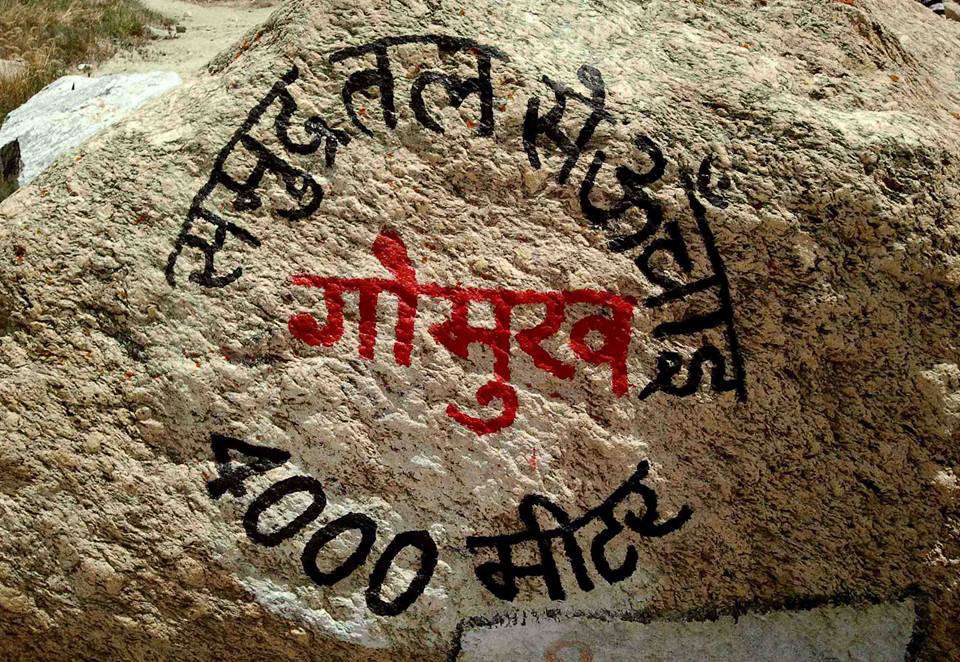 समुद्र तल से ऊँचाई
गौमुख
4000 मीटर